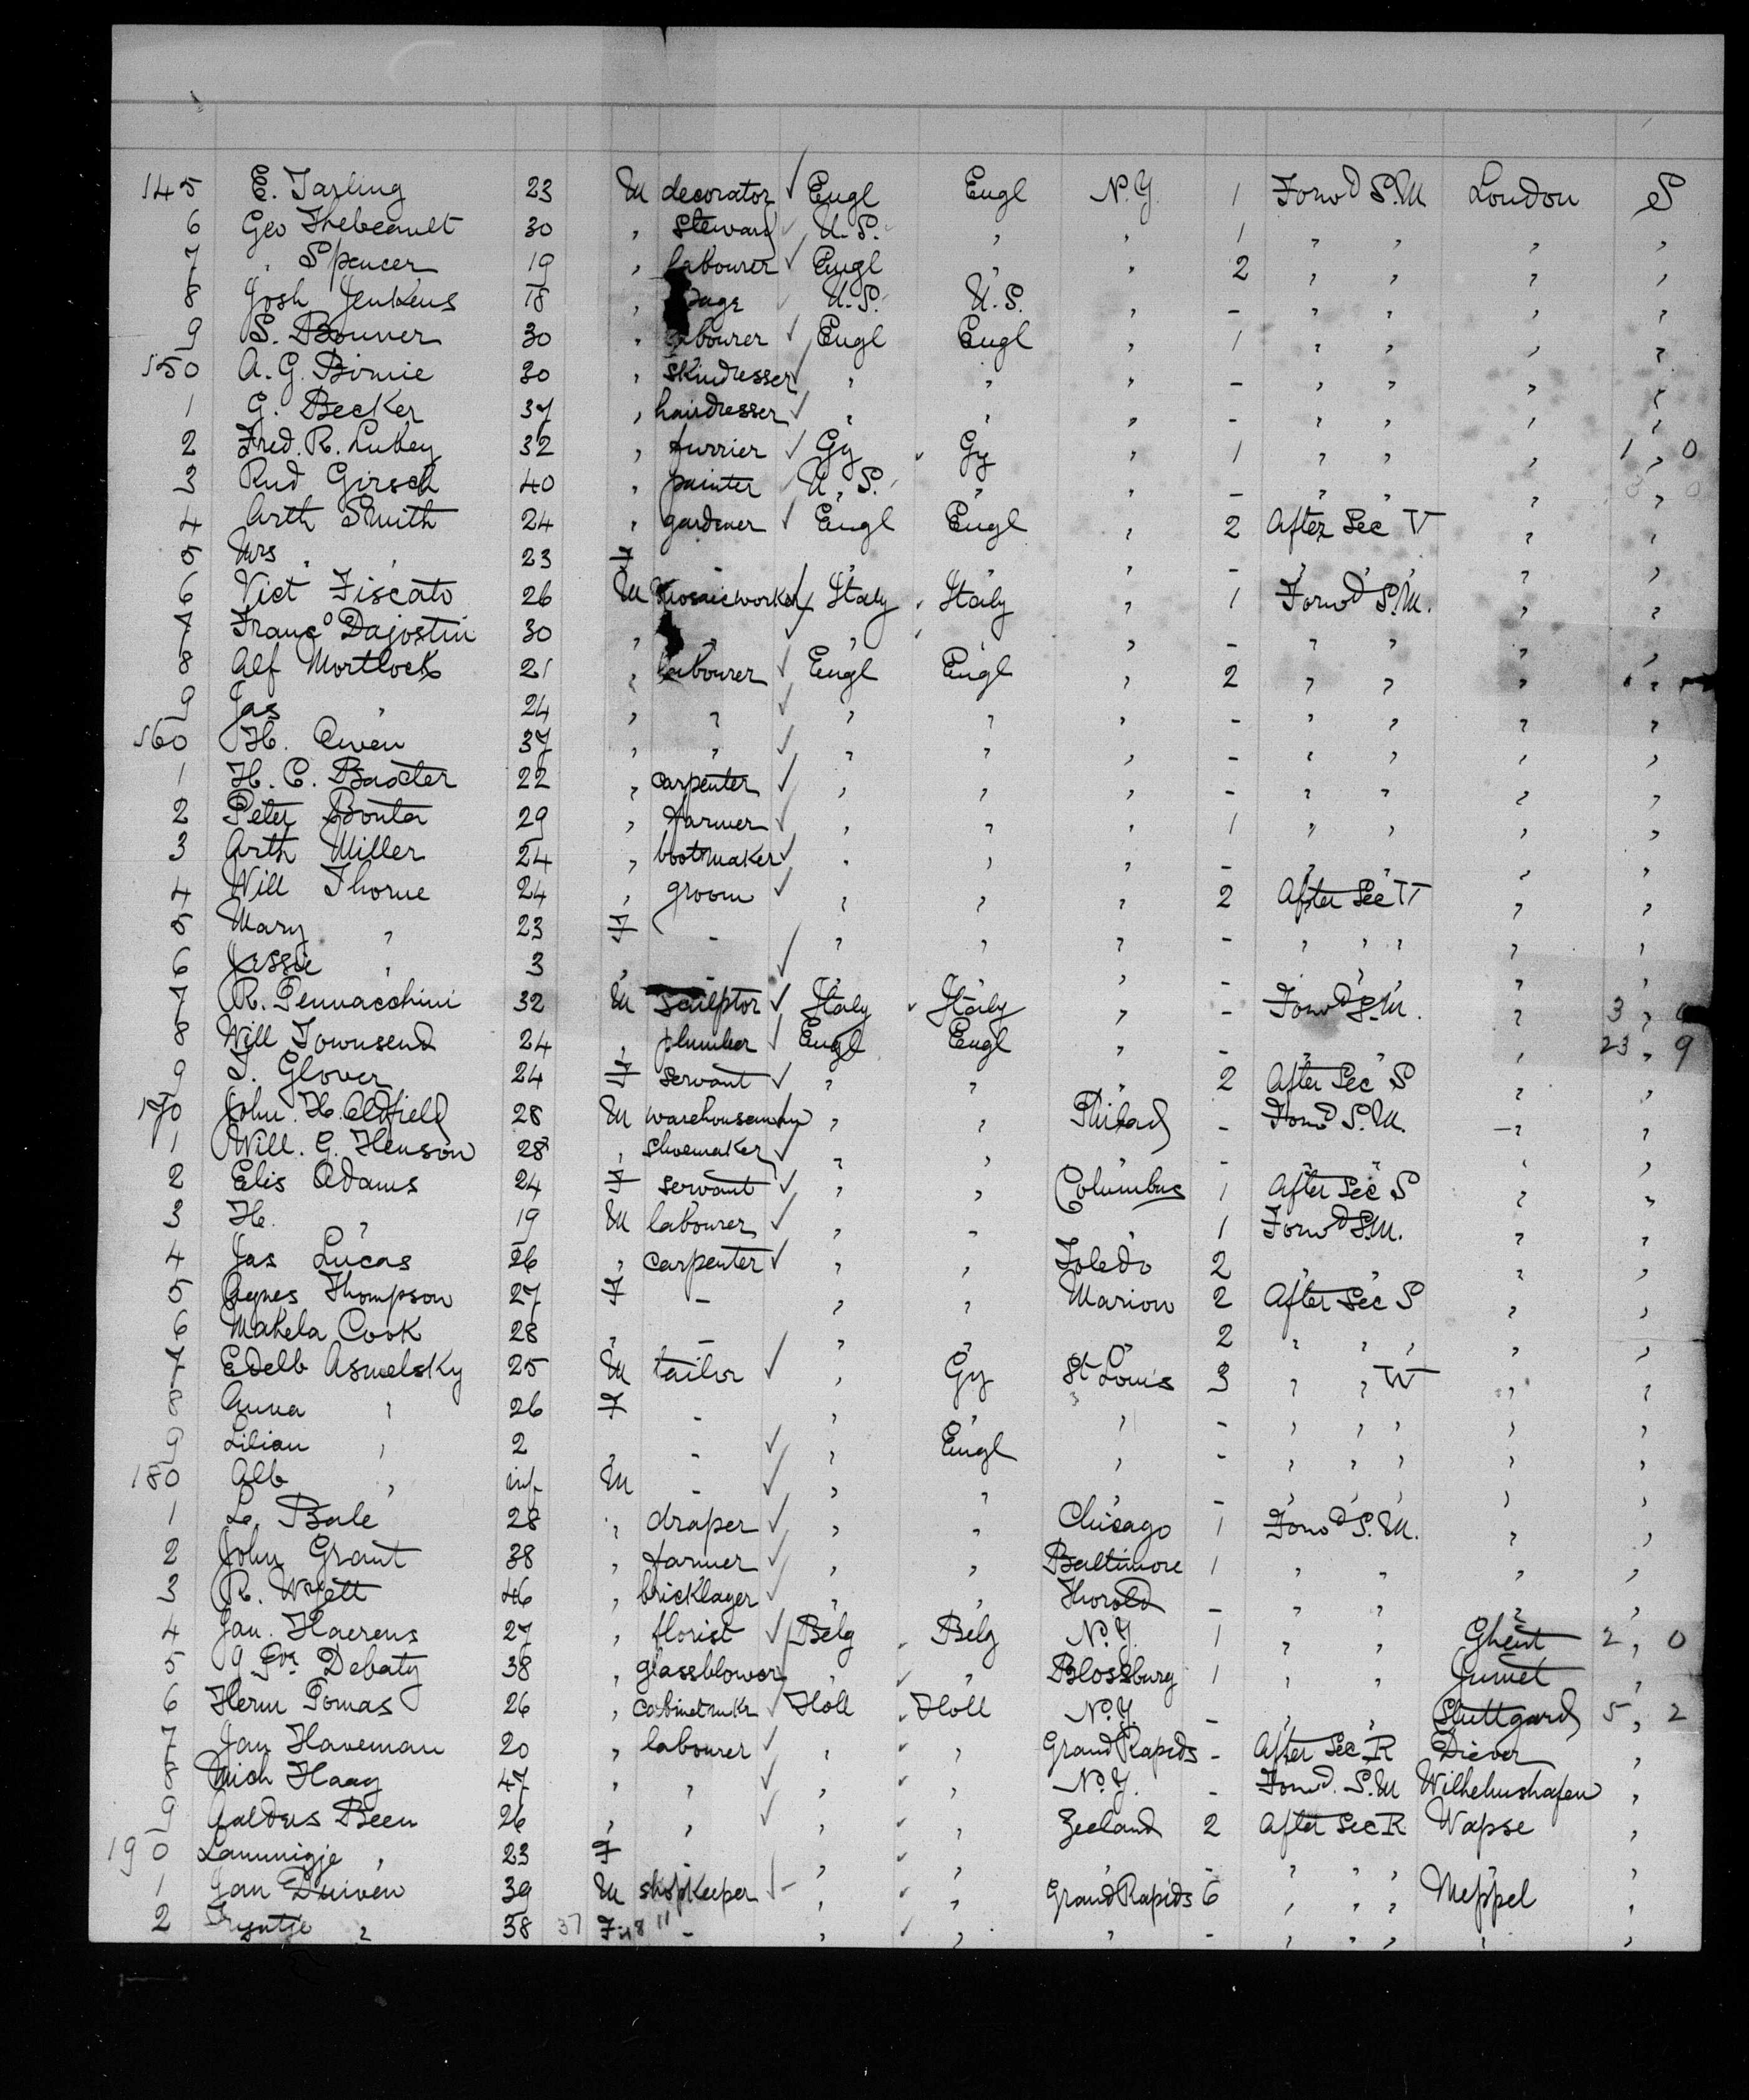 145 E. Tarling 23 M decorator ✓ Engl Engl N.Y. 1 Forwd S.M London S
6 Geo Thebeault 30 , Steward ✓ U.S. , , 1 , , , ,
7 , Spencer 19 , labourer ✓ Engl , , 2 , , , ,
8 Josh Jenkens 18 , page ✓ U.S. U.S. , - , , , ,
9 S. Bonner 30 , labourer ✓ Engl Engl , 1 , , , ,
150 A. G. Birnie 30 , skindresser ✓ , , , - , , , ,
1 G. Becker 37 , hairdresser ✓ , , , - , , , ,
2 Fred. R. Lukey 32 , furrier ✓ Gy Gy , 1 , , , 1 , 0
3 Rud Girsch 40 , painter U.S. , , - , , , ,
4 Arth Smith 24 , gardener ✓ Engl Engl , 2 After Sec W , ,
5 Mrs , 23 F , , , - , , , ,
6 Vict Fiscato 26 M Mosaicworker Italy Italy , 1 Forwd S.M. , ,
7 Franco Dajostin 30 , , ✓ , , , - , , , ,
8 Alf Mortlock 21 , labourer ✓ Engl Engl , 2 , , , ,
9 Jas , 24 , , ✓ , , , - , , , ,
160 H. Owen 37 , , ✓ , , , - , , , ,
1 H. C. Baxter 22 , carpenter ✓ , , , - , , , ,
2 Peter Bonta 29 , farmer ✓ , , , 1 , , , ,
3 Arth Miller 24 , bootmaker ✓ , , , - , , , ,
4 Will Thorne 24 , groom ✓ , , , 2 After Sec W , ,
5 Mary , 23 F - , , , - , , , , ,
6 Jessie , 3 , ✓ , , , - , , , ,
7 R. Pennacchini 32 M sculptor ✓ Italy Italy , - Forwd S.M. , 3 ,
8 Will Townsend 24 , plumber ✓ Engl Engl , - , , , 23 , 9
9 T. Glover 24 F servant ✓ , , , 2 After Sec S , ,
170 John. H. Oldfield 28 M warehouseman , , Philad - Forwd S.M. , ,
1 Will. G. Henson 28 , shoemaker ✓ , , , - , , , ,
2 Elis Adams 24 F servant ✓ , , Columbus 1 After Sec S , ,
3 H. , 19 M labourer ✓ , , , 1 Forwd S.M. , ,
4 Jas Lucas 26 , carpenter ✓ , , Toledo 2 , , , ,
5 Agnes Thompson 27 F - , , Marion 2 After Sec S , ,
6 Mahela Cook 28 , - , , , 2 , , , , ,
7 Edelb Asmelsky 25 M tailor ✓ , Gy St Louis 3 , , W , ,
8 Anna , 26 F - , , , - , , , , ,
9 Lilian , 2 , - ✓ , Engl , - , , , , ,
180 Alb , inf M - ✓ , , , - , , , , ,
1 Le. Bale 28 , draper ✓ , , Chicago 1 Forwd S.M. , ,
2 John Grant 38 , farmer ✓ , , Baltimore 1 , , , ,
3 R. Wyett 46 , bricklayer ✓ , , Thorold - , , , ,
4 Jan. Haerens 27 , florist ✓ Belg Belg N.Y. 1 , , Ghent 2 , 0
5 Debaty 38 , glassblower , , Blossburg 1 , , Jumet ,
6 Herm Pomas 26 , cabinetmkr ✓ Holl Holl N.Y. - , , Stuttgard 5 , 2
7 Jan Haveman 20 , labourer ✓ , , Grand Rapids - After Sec R Diever ,
8 Mich Haag 47 , , ✓ , , N.Y. - Forwd. S.M Wilhelmshafen ,
9 Aalders Been 26 , , ✓ , , Zeeland 2 After Sec R Wapse ,
190 Lammigje , 23 F - , , , - , , , , ,
1 Jan Duiven 39 M shopkeeper ✓ , , Grand Rapids 6 , , , Meppel ,
2 Tryntje , 38 37 F - , , , - , , , , ,